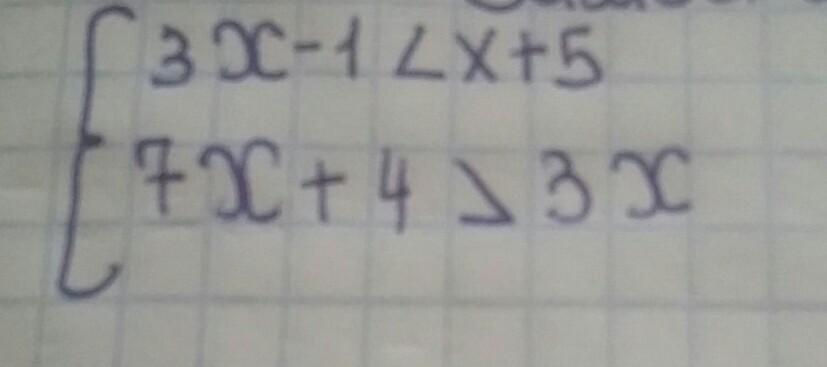 3x-1<x+5
7x+4>3x